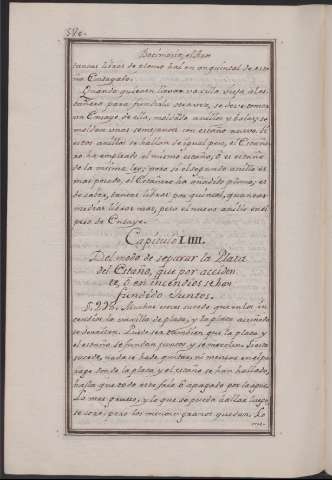 Docimacia, el Fun
tantas libras de plomo hai en un quintal de esta
ño Ensayado.
Quando quieren llevar vaxilla vieja al es-
tañero para fundirla otra vez, se deve tomar
un Ensaye de ella, moldado anillos y balas; se
moldan unos semejantes con estaño nuevo. Si
estos anillos se hallan de igual peso, el Estañe-
ro ha empleado el mismo estaño, ó es estaño
de la misma ley; pero si el segundo anillo es
mas pesado, el Estañero ha añadido plomo, es
de saber, tantas libras por quintal, quantas
medias libras mas, pesa el nuevo anillo en el
peso de Ensaye.
Capitulo LIIII.
Del modo de separar la Plata
del Estaño, que por acciden
te, ó en incendios se han
fundido Juntos.
Muchas veces sucede que en los in-
cendios la vaxilla de plata, y la plata acuñada
se derriten. Puede ser tambien que la plata y
el estaño se fundan juntos, y se mezclen. Si esto
sucede, nada se hade quitar, ni menos en el pa-
rage donde la plata y el estaño se han hallado,
hasta que todo este frio ó apagado por la agua.
Lo mas grueso, y lo que se pueda hallar luego,
se coge; pero los menores granos quedan. Lo